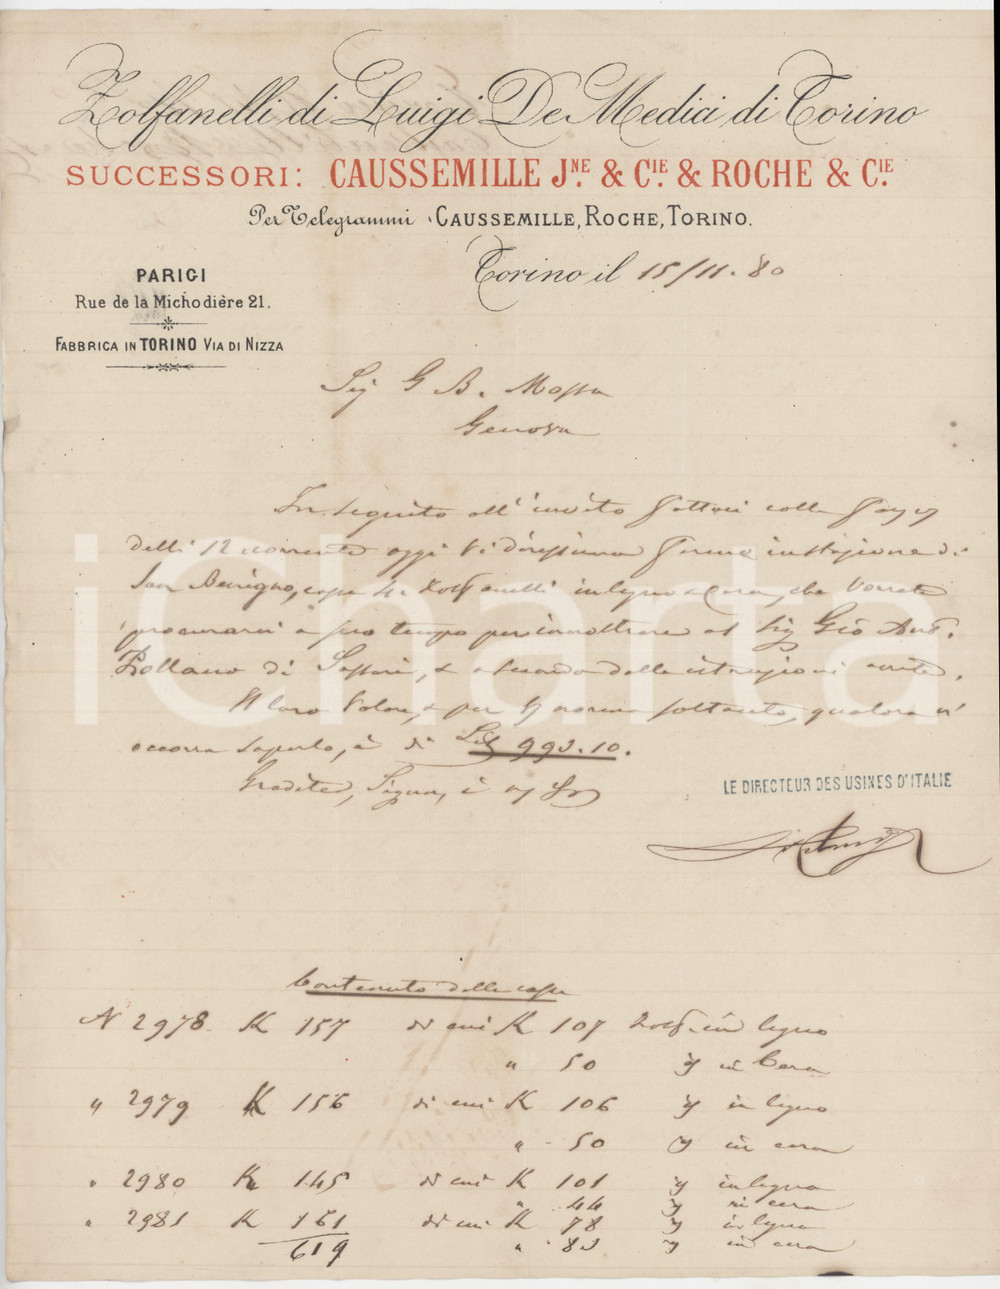 Zolfanelli di Luigi De Medici di Torino
SUCCESSORI: CAUSSEMILLE JNE & CIE & ROCHE & CIE
Per Telegrammi CAUSSEMILLE, ROCHE, TORINO.
Torino il 15/11. 80
PARIGI
Rue de la Michodière 21.
FABBRICA IN TORINO VIA DI NIZZA
Sig G B. Mossa
Genova
In seguito all'invito fattoci colla
delli 12 corrente oggi Vi diressimo ferma in stazione di
San Benigno, casse 4 Zolfanelli in legno e Cera, che Vorrete
procurarvi a suo tempo per inoltrare al Sig Gio Ant.
di Sassari, e a seconda delle istruzioni avute.
Il loro Valore, e per norma soltanto, qualora vi
occorra saperlo, è di L. 993.10.
Gradite, Signor, i
LE DIRECTEUR DES USINES D'ITALIE
Contenuto delle casse
N 2978 K 157 di cui K 107 Zolf. in legno
" 50 " in Cera
" 2979 K 156 di cui K 106 " in legno
" 50 " in cera
" 2980 K 145 di cui K 101 " in legno
" 44 " in cera
" 2981 K 161 di cui K 78 " in legno
619 " 83 " in cera
iCharta